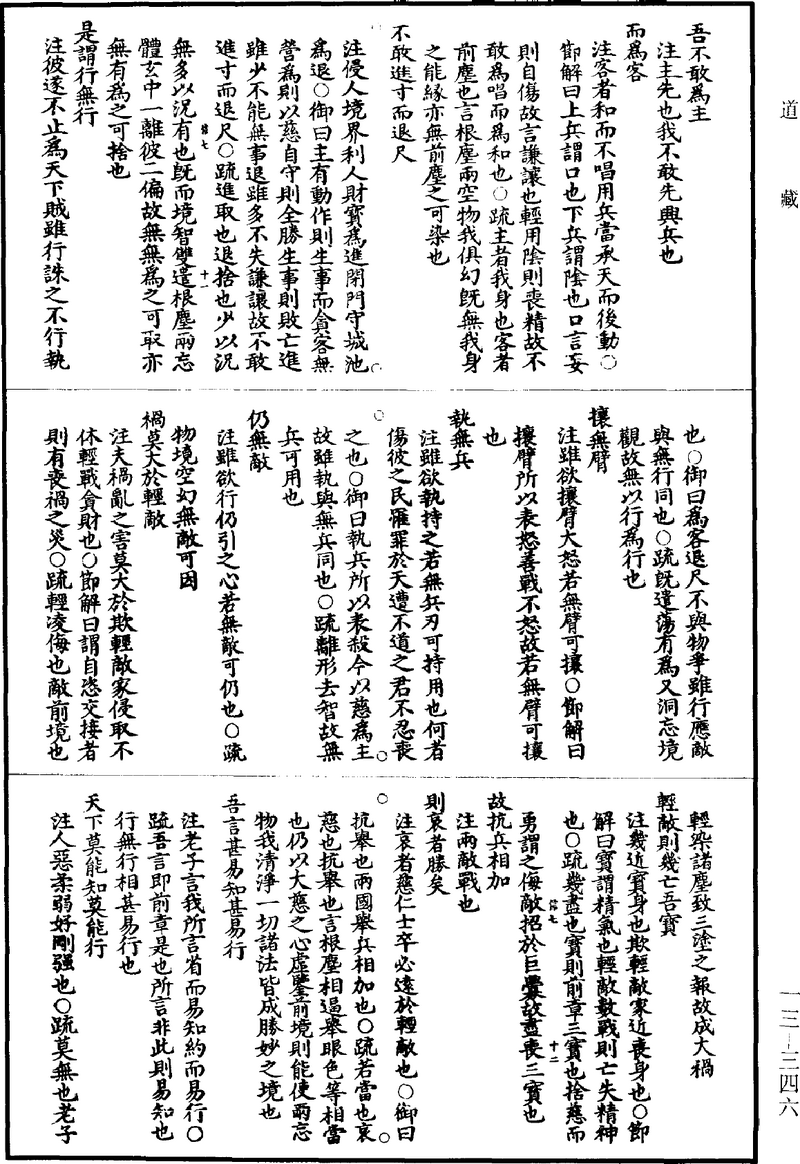 吾不敢爲主
注主先也我不敢先興兵也
而爲客
注客者和而不唱用兵當承天而後動〇
節解曰上兵謂口也下兵謂陰也口言妄
則自傷故言謙讓也輕用陰則喪精故不
敢爲唱而爲和也〇疏主者我身也客者
前塵也言根塵兩空物我俱幻旣無我身
之能緣亦無前塵之可染也
不敢進寸而退尺
注侵人境界利人財寶爲進閉門守城池
爲退〇御曰主有動作則生事而貪客無
營爲則以慈自守則全勝生事則敗亡進
雖少不能無事退雖多不失謙讓故不敢
進寸而退尺〇疏進取也退捨也少以況
無多以況有也旣而境智雙遣根塵兩忘
體玄中一離彼二偏故無無爲之可取亦
無有爲之可捨也
是謂行無行
注彼遂不止爲天下賊雖行誅之不行執
也〇御曰爲客退尺不與物爭雖行應敵
與無行同也〇疏旣遣蕩有爲又洞忘境
觀故無以行爲行也
攘無臂
注雖欲攘臂大怒若無臂可攘〇節解曰
攘臂所以表怒善戰不怒故若無臂可攘
也
執無兵
注雖欲執持之若無兵刃可持用也何者
傷彼之民罹罪於天遭不道之君不忍喪
之也〇御曰執兵所以表殺今以慈爲主
故雖執與無兵同也〇疏離形去智故無
兵可用也
仍無敵
注雖欲行仍引之心若無敵可仍也〇疏
物境空幻無敵可因
禍莫大於輕敵
注夫禍亂之害莫大於欺輕敵家侵取不
休輕戰貪財也〇節解曰謂自恣交接者
則有喪禍之災〇疏輕凌侮也敵前境也
輕染諸塵致三塗之報故成大禍
輕敵則幾亡吾寶
注幾近寶身也欺輕敵家近喪身也〇節
解曰寶謂精氣也輕敵數戰則亡失精神
也〇疏幾盡也寶則前章三寶也捨慈而
勇謂之侮敵招於巨釁故盡喪三寶也
故抗兵相加
注兩敵戰也
則哀者勝矣
注哀者慈仁士卒必遠於輕敵也〇御曰
抗舉也兩國舉兵相加也〇疏若當也哀
慈也抗舉也言根塵相逼舉眼色等相當
也仍以大慈之心虛鑒前境則能使兩忘
物我清淨一切諸法皆成勝妙之境也
吾言甚易知甚易行
注老子言我所言省而易知約而易行〇
疏吾言即前章是也所言非此則易知也
行無行相甚易行也
天下莫能知莫能行
注人惡柔弱好剛强也〇疏莫無也老子
十一
十二
道藏
一三—三四六